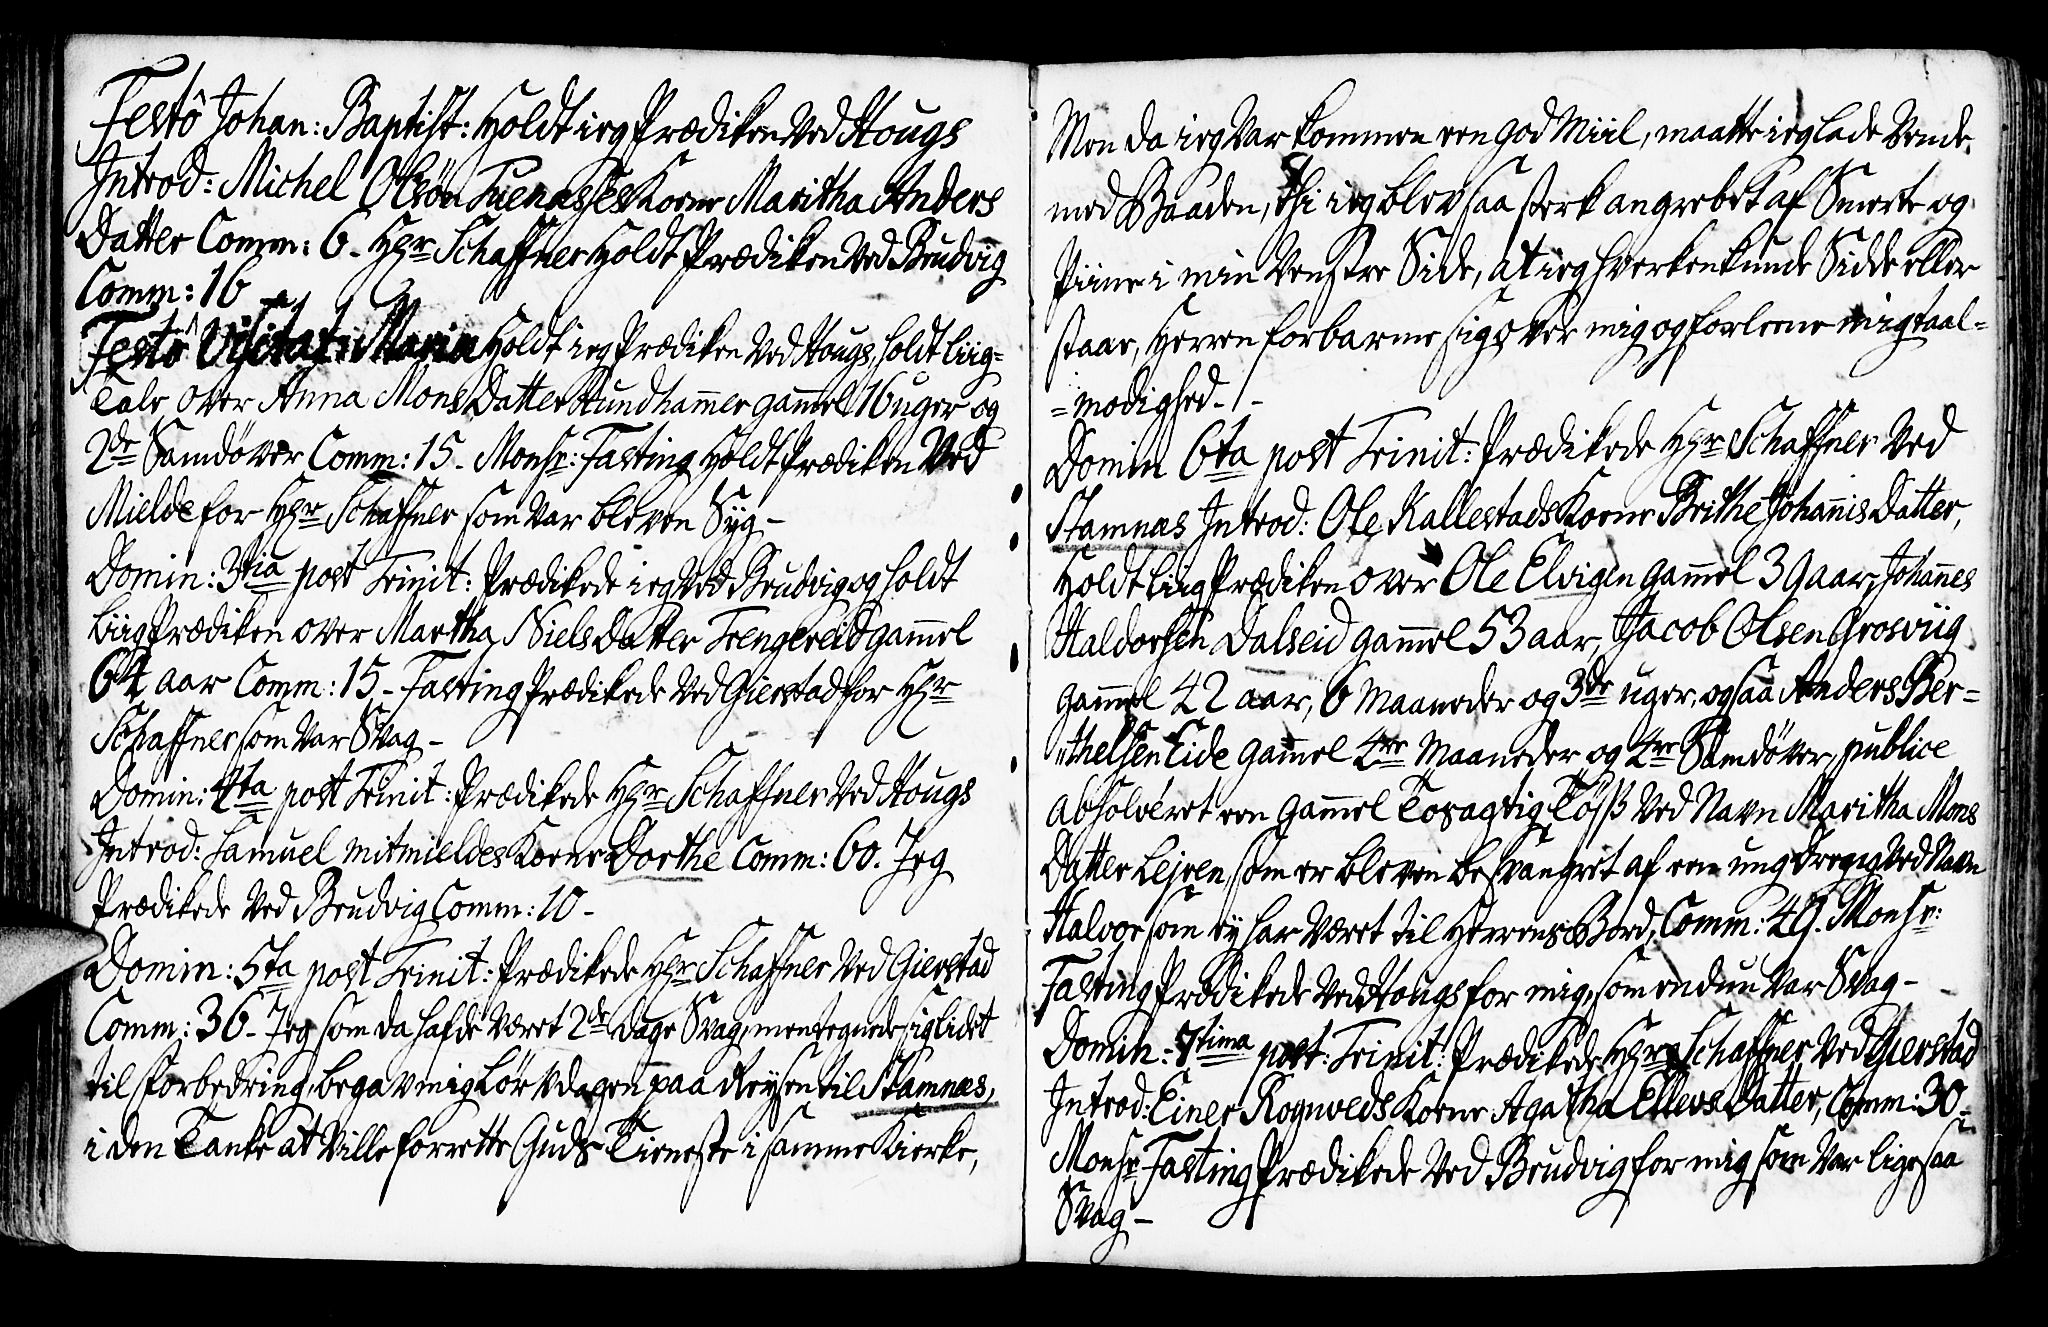 Festô Johan: Baptist: Holdt ieg Prædiken Ved Hougs
Introd: Michel Olsøn Fuenæs[?]es Kone Maritha Anders
Datter Comm: 6 - Hr Schaffner Holdt Prædiken Ved Brudvig
Comm: 16
Festô Visitat: Mariæ Holdt ieg Prædiken Ved Hougs, holdt Liig-
Tale over Anna Mons Datter Hundhamer gamel 16 uger og
2de Samdøver Comm: 15 - Monsr: Fasting Holdt Prædiken Ved
Mielde for Hr Schaffner som Var bleven Syg -
Domin: 3tia post Trinit: Prædikede ieg Ved Brudvig og holdt
LiigPrædiken over Martha Niels Datter Trengereid gamel
64 aar Comm: 15 - Fasting Prædikede Ved Gierstad for Hr
Schaffner som Var Svag -
Domin: 4ta post Trinit: Prædikede Hr Schaffner Ved Hougs
Introd: Samuel Mitmieldes Kone Dorthe Comm: 60. Jeg
Prædikede Ved Brudvig Comm: 10 -
Domin: 5ta post Trinit: Prædikede Hr Schaffner Ved Gierstad
Comm: 36 - Jeg som da hafde Været 2de dage Svag, men tegnede sig lidet
til forbedring, begav mig Løverdagen paa Reysen til Stamnæs,
i den Tanke at Ville forrette Guds Tieneste i samme Kierke,
Men da ieg Var kommen een god Miil, maatte ieg lade Vende
med Baaden, thi ieg blev saa sterk angrebet af Smerte og
Piine i min Venstre Side, at ieg hverken kunde Sidde eller
staae, Herren forbarme sig over mig og forleene mig taal=
=modighed - / -
Domin 6ta post Trinit: Prædikede Hr Schaffner Ved
Stamnæs Introd: Ole Kallestads Kone Brithe Johanis Datter,
Holdt LiigPrædiken over Ole Elvigen gamel 39 aar, Johannes
Haldorsen Dalseid gamel 53 aar, Jacob Olsen Grosviig
gamel 42 aar, 6 Maaneder og 3de uger, og saa Anders Ber=
"thelsen Eide gamel 4re Maaneder og 4re Samdøver, publice
absolveret een gamel Tosagtig Tøss Ved Navn Maritha Mons
Datter Lejren, som er bleven besvangret af een ung dreng Ved Navn
Halvor som ey har Været til Herrens Bord, Comm: 49. Monsr:
Fasting Prædikede Ved Hougs for mig, som endnu Var Svag -
Domin: 7tima post: Trinit: Prædikede Hr Schaffner Ved Gierstad
Introd: Einer Rognveds Kone Agatha Ellevs Datter, Comm: 30 -
Monsr Fasting Prædikede Ved Brudvig for mig som Var ligesaa
Svag -